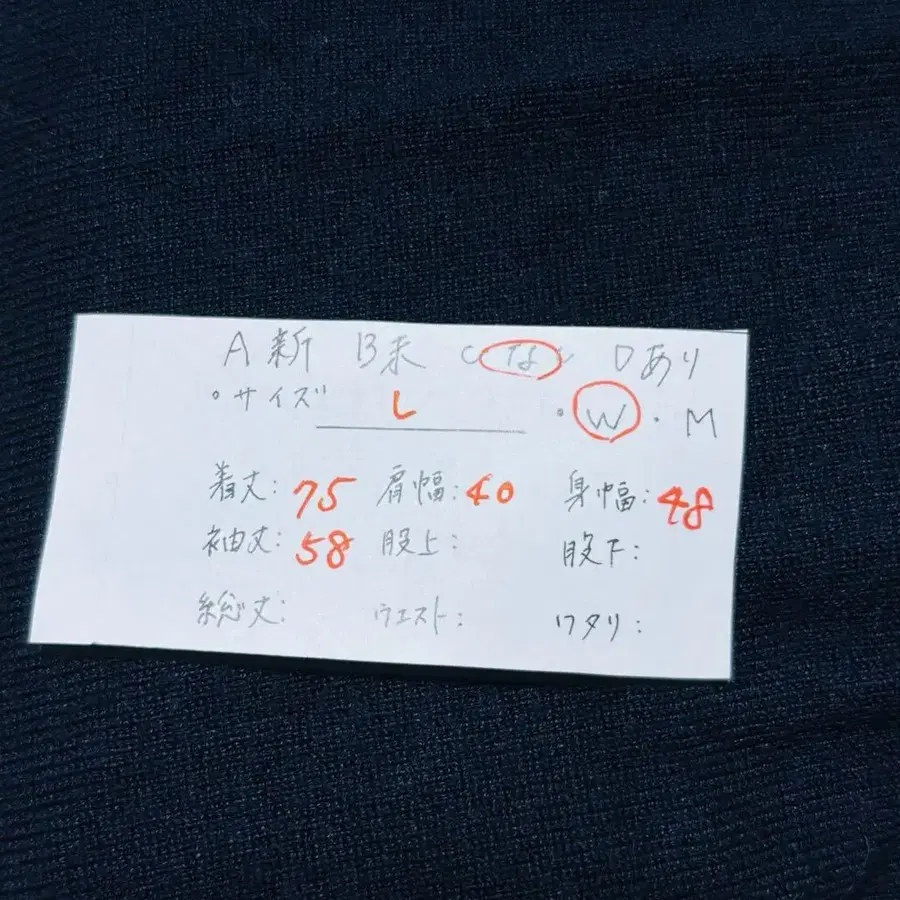 A 新 B未 Cなし Dあり
・サイズ L ・W・M
着丈:75 肩幅:40 身幅:48
袖丈:58 股上: 股下:
総丈: ウエスト: ワタリ: